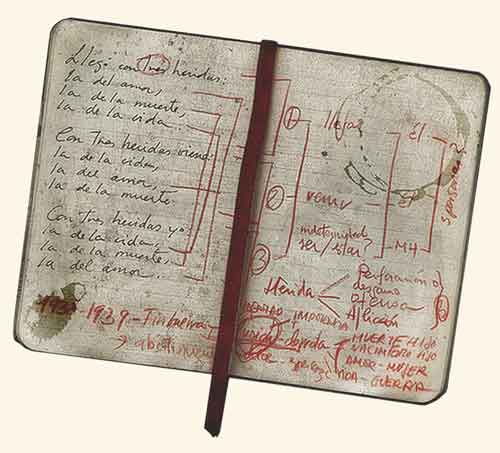 Llegó con tres heridas:
la del amor,
la de la muerte,
la de la vida.
Con tres heridas viene:
la de la vida,
la del amor,
la de la muerte.
Con tres heridas yo:
la de la vida,
la de la muerte,
la del amor.
1938-1939-
→
1
llegar
él
2
venir
2 personas
ser/estar?
MH
3
Herida
Perforación o
desgarro
ofensa
Aflicción
MUERTE HIJO
NACIMIENTO HIJO
AMOR-MUJER
VIDA-GUERRA